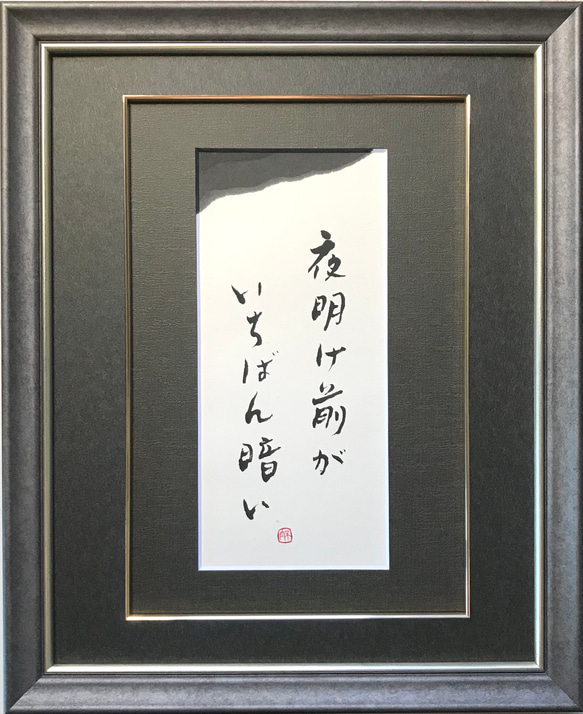 夜明け前が
いちばん暗い